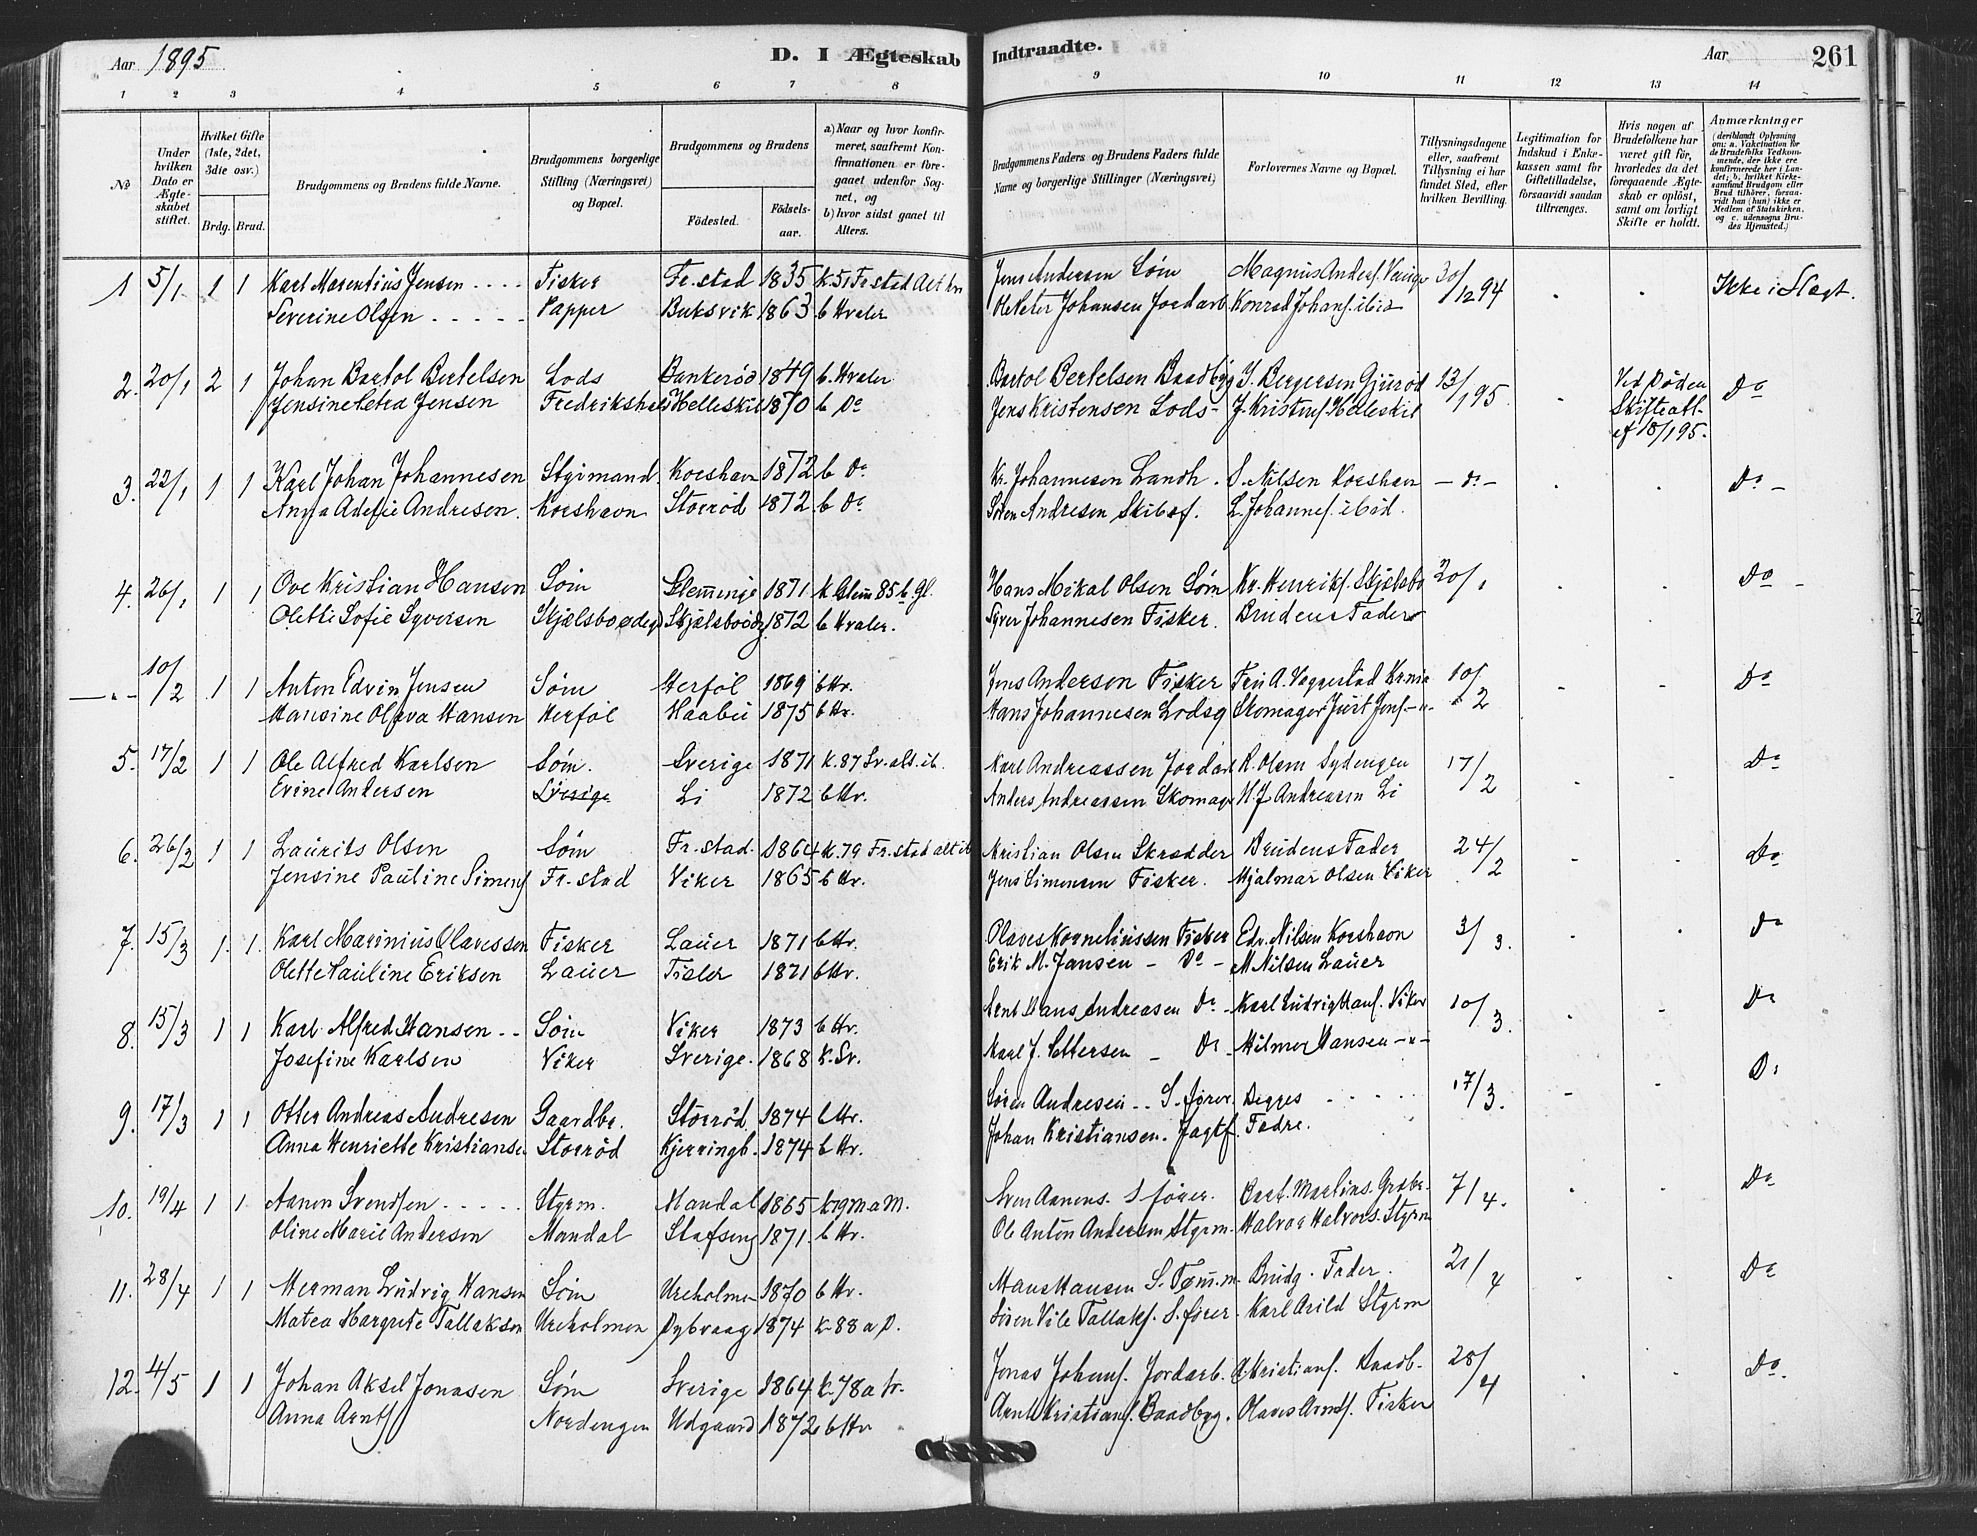 Aar 1895 D. I Ægteskab Indtraadte. Aar 261
1 2 3 4 5 6 7 8 9 10 11 12 13 14
No
Under hvilken Dato er Ægteskabet stiftet.
Hvilket Gifte (1ste, 2det, 3die osv.)
Brdg. Brud.
Brudgommens og Brudens fulde Navne.
Brudgommens borgerlige Stilling (Næringsvei) og Bopæl.
Brudgommens og Brudens
Fødested.
Fødselsaar.
a) Naar og hvor konfirmeret, saafremt Konfirmationen er foregaaet udenfor Sognet, og
b) hvor sidst gaaet til Alters.
Brudgommens Faders og Brudens Faders fulde Navne og borgerlige Stillinger (Næringsvei)
Forlovernes Navne og Bopæl.
Tillysningsdagene eller, saafremt Tillysning ei har fundet Sted, efter hvilken Bevilling.
Legitimation for Indskud i Enkekassen samt for Giftetilladelse, forsaavidt saadan tiltrænges.
Hvis nogen af Brudefolkene har været gift før, hvorledes da det foregaaende Ægteskab er opløst, samt om lovligt Skifte er holdt.
Anmærkninger (deriblandt Oplysning om: a. Vakcination for de Brudefolks Vedkommende, der ikke ere konfirmerede her i Landet; b. hvilket Kirkesamfund Brudgom eller Brud tilhører, forsaavidt han (hun) ikke er Medlem af Statskirken, og c. udensogns Brudes Hjemsted.)
1 5/1 1 1 Karl Marentius Jensen .... Fisker Fr.stad 1835 k.51 Fr.stad Jens Andersen Søm Magnus Anders. 30/12 94 Ikke i Slegt.
Severine Olsen ..... Papper Buksvik 1863 b Hvaler Ole Peter Johansen Jordarb Konrad Johans. ibid
2. 20/1 2 1 Johan Bartol Bertelsen Lods Bankerød 1849 b. Hvaler Bartol Bertelsen Baadbyg J. Bergersen Gjurød 13/1 95 Ved Døden Do
Jensine Petra Jensen Fredrikshald Helleskil 1870 b Do Jens Kristensen Lods- J. Kristens. Helleskil Skifteatt-
af 18/1 95.
3. 22/1 1 1 Karl Johan Johannesen Styrmand Korshavn 1872 b Do Kr. Johannesen Landh. S. Nilsen Korshavn - do - Do -
Anna Adefie Andresen. Korshavn Storrød 1872 b Do Søren Andresen Skibsf. L. Johannes. ibid.
4. 26/1 1 1 Ove Kristian Hansen Søm Glemminge 1871 k Glem 85 b Gl. Hans Mikal Olsen Søm Kr. Henriks. Skjelsbo 20/1 Do -
Olette Sofie Syversen Skjælsboødeg Skjælsboødg 1872 b Hvaler. Syver Johannesen Fisker. Brudens Fader
- " - 10/2 1 1 Anton Edvin Jensen Søm Herføl 1869 b Hv. Jens Andersen Fisker Fru A. Vaggestad Krnia 10/2 Do
Hansine Olava Hansen Herføl Haabu 1875 b Hv. Hans Johannesen Lodsg Skomager Just Jens. -"-
5. 17/2 1 1 Ole Alfred Karlsen Søm. Sverige 1871 k. 87 Sv. alt. ib. Karl Andreassen Jordarb R. Olsen Sydengen 17/2 Do
Evine Andersen Sverige Li 1872 b Hv. Anders Andreassen Skomag H. J. Andreasen Li
6. 26/2 1 1 Laurits Olsen Søm Fr.stad. 1864 k. 79 Fr.stad alt ib Kristian Olsen Skrædder Brudens Fader 24/2 Do
Jensine Pauline Simens Fr.stad Viker 1865 b Hv. Jens Simensen Fisker. Hjalmar Olsen Viker
7. 15/3 1. 1. Karl Marinius Olavessen Fisker Lauer 1871 b Hv. Olaves Korneliussen Fisker Edv. Nilsen Korshavn 3/3. Do
Olette Pauline Eriksen Lauer Tisler 1871 b Hv. Erik M. Jansen - Do - M Nilsen Lauer
8. 15/3 1 1 Karl Alfred Hansen -- Søm Viker 1873 b Hv. Arnt Hans Andreasen Do Karl Ludvig Hans. Viker 10/3. Do
Josefine Karlsen Viker Sverige. 1868 k. Sv. Karl J. Pettersen - Do - Hilmer Hansen -"-
9. 17/3 1 1 Otter Andreas Andresen Gaardbr. Storrød. 1874 b Hv. Søren Andresen .. S. fører. Begges ..... 17/3. Do
Anna Henriette Kristiansen Storrød Kjerringh. 1874 b Hv. Johan Kristiansen. Jagtf. Fædre.
10. 19/4 1 1 Aanen Svendsen ..... Styrm. Mandal 1865 Sven Aanens. S fører. Bart. Martins. 7/4. Do
Oline Marie Andersen Mandal Stafseng 1871. b Hv. Ole Anton Andersen Styrm. Halvor Halvors. Styrm
11. 28/4 1 1 Herman Ludvig Hansen Søm Ureholmen 1870 b Hv. Hans Hansen S. Tømm. Brudg. Fader. 21/4 Do
Matea Margrete Tallaksen Ureholmen Dybvaag 1874 k. 88 a D. Søren Vile Tallaks. S. fører. Karl Arild Styrm
12. 4/5 1 1 Johan Aksel Jonasen Søm Sverige 1864 k. 78 a Sv. Jonas Johans. Jordarb. Kristians. Baadb. 28/4 Do.
Anna Arnts Nordengen Udgaard 1872 b Hv Arnt Kristians. Baadbyg. Olaves Arnts. Fisker